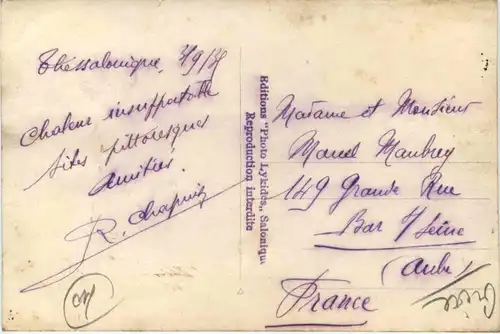 Thessalonique,
Chaleur insupportable
sites pittoresques
Amitiés.
R. Chapuis
Editions "Photo Lykides,, Salonique
Reproduction interdite
Madame et Monsieur
Marcel Maubrey
149 Grande Rue
Bar s/Seine
(Aube)
France